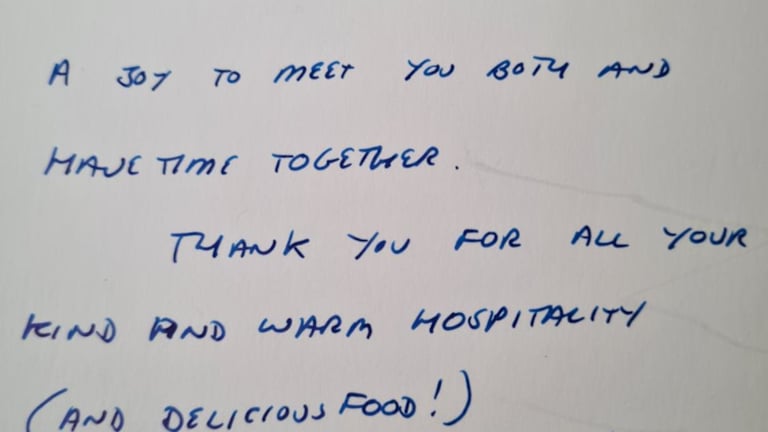 A JOY TO MEET YOU BOTH AND
HAVE TIME TOGETHER.
THANK YOU FOR ALL YOUR
KIND AND WARM HOSPITALITY
(AND DELICIOUS FOOD!)